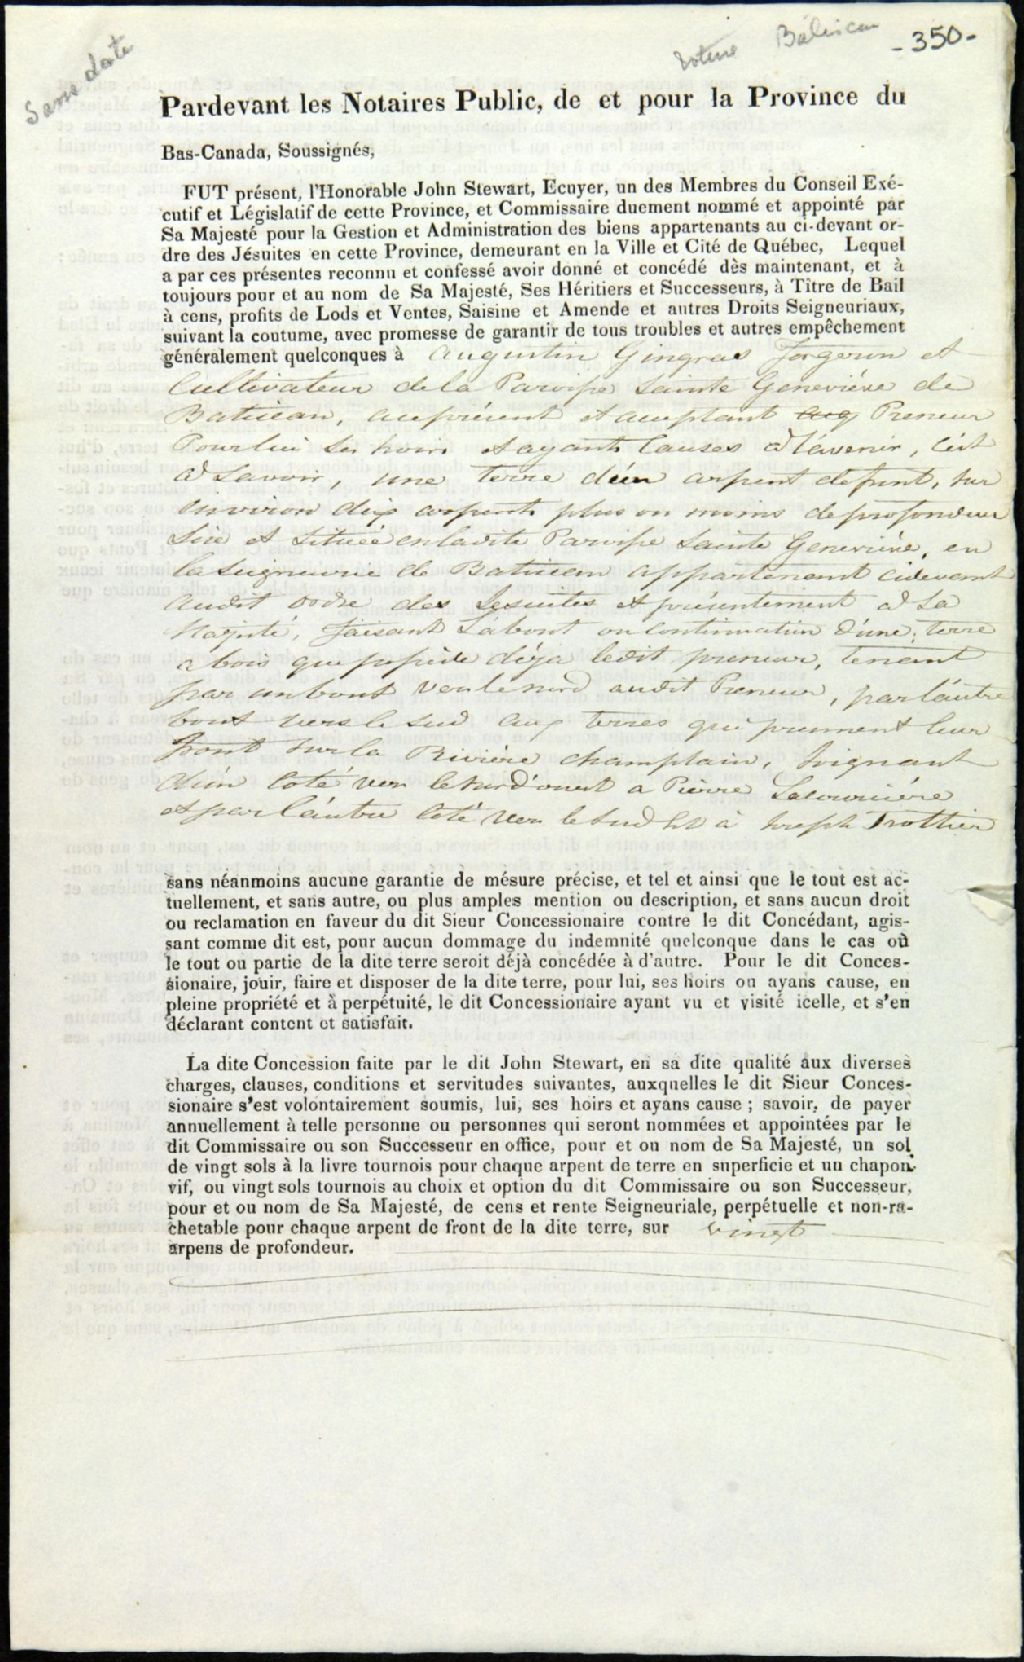 Sans date
Batiscan
-350-
Pardevant les Notaires Public, de et pour la Province du
Bas-Canada, Soussignés,
FUT présent, l'Honorable John Stewart, Ecuyer, un des Membres du Conseil Exé-
cutif et Législatif de cette Province, et Commissaire duement nommé et appointé par
Sa Majesté pour la Gestion et Administration des biens appartenants au ci-devant or-
dre des Jésuites en cette Province, demeurant en la Ville et Cité de Québec, Lequel
a par ces présentes reconnu et confessé avoir donné et concédé dès maintenant, et à
toujours pour et au nom de Sa Majesté, Ses Héritiers et Successeurs, à Tître de Bail
à cens, profits de Lods et Ventes, Saisine et Amende et autres Droits Seigneuriaux,
suivant la coutume, avec promesse de garantir de tous troubles et autres empêchement
généralement quelconques à Augustin Gingras forgeron et
Cultivateur de la Paroisse Sainte Geneviéve de
Batiscan, a ce présent et acceptant Preneur
Pour lui ses hoirs et ayants Causes à l'avenir, C'est
à Savoir, une terre d'un arpent de front, sur
environ dix arpents plus ou moins de profondeur
Size et Située en ladite Paroisse Sainte Geneviéve, en
la Seigneurie de Batiscan appartenant cidevant
audit ordre des Jesuites et présentement à Sa
Majesté, faisant L'about ou Continuation d'une terre
a bois que possède déja ledit preneur, tenant
par un bout vers le nord audit Preneur, par l'autre
bout vers le sud aux terres qui prennent leur
front sur la Rivière champlain, Joignant
d'un coté vers le nord'ouest a Pierre Lacoursiére
et par l'autre Coté vers le Sud Est à Joseph Trottier
sans néanmoins aucune garantie de mésure précise, et tel et ainsi que le tout est ac-
tuellement, et sans autre, ou plus amples mention ou description, et sans aucun droit
ou reclamation en faveur du dit Sieur Concessionaire contre le dit Concédant, agis-
sant comme dit est, pour aucun dommage du indemnité quelconque dans le cas où
le tout ou partie de la dite terre seroit déjà concédée à d'autre. Pour le dit Conces-
sionaire, jouir, faire et disposer de la dite terre, pour lui, ses hoirs ou ayans cause, en
pleine propriété et à perpétuité, le dit Concessionaire ayant vu et visité icelle, et s'en
déclarant content et satisfait.
La dite Concession faite par le dit John Stewart, en sa dite qualité aux diverses
charges, clauses, conditions et servitudes suivantes, auxquelles le dit Sieur Conces-
sionaire s'est volontairement soumis, lui, ses hoirs et ayans cause ; savoir, de payer
annuellement à telle personne ou personnes qui seront nommées et appointées par le
dit Commissaire ou son Successeur en office, pour et ou nom de Sa Majesté, un sol
de vingt sols à la livre tournois pour chaque arpent de terre en superficie et un chapon
vif, ou vingt sols tournois au choix et option du dit Commissaire ou son Successeur,
pour et ou nom de Sa Majesté, de cens et rente Seigneuriale, perpétuelle et non-ra-
chetable pour chaque arpent de front de la dite terre, sur vingt
arpens de profondeur.